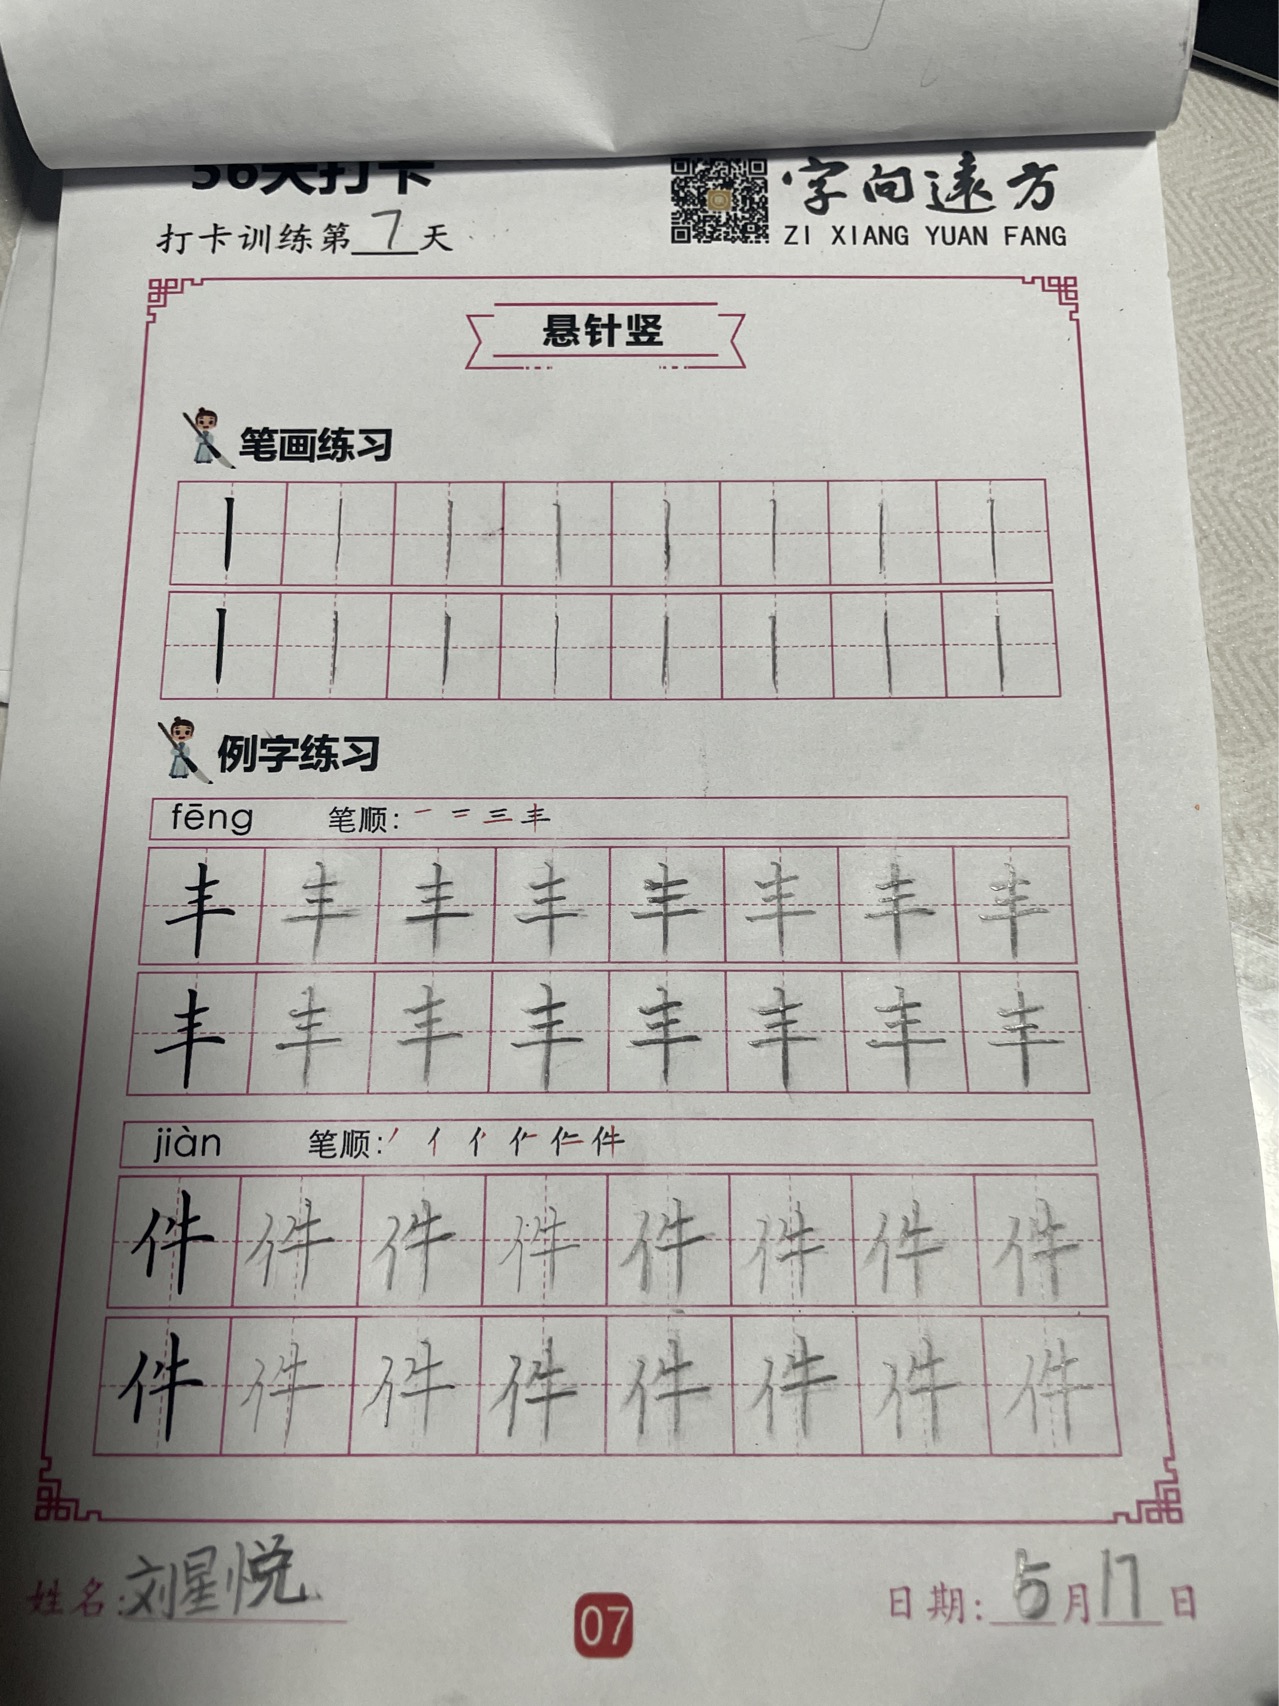 56天打卡
字向遠方
打卡训练第7天
ZI XIANG YUAN FANG
悬针竖
笔画练习
丨丨丨丨丨丨丨丨
丨丨丨丨丨丨丨丨
例字练习
fēng 笔顺: 一 二 三 丰
丰丰丰丰丰丰丰丰
丰丰丰丰丰丰丰丰
jiàn 笔顺: 丿 亻 件
件件件件件件件件
件件件件件件件件
姓名:刘星悦
07
日期:5月17日